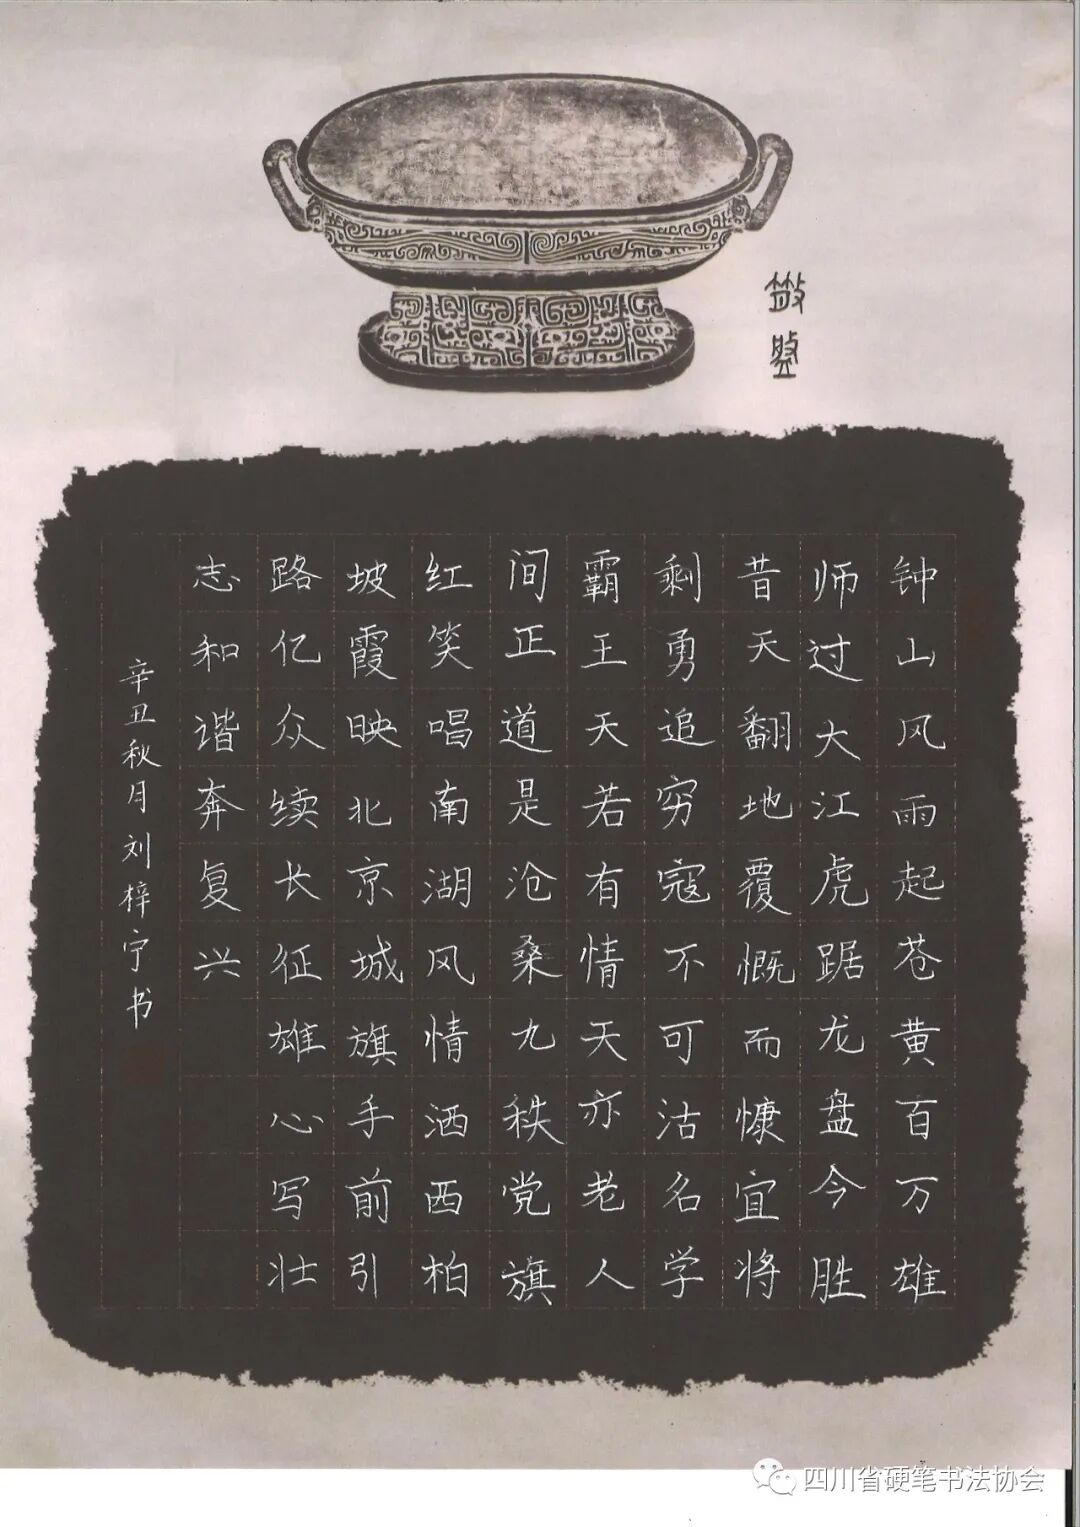 钟山风雨起苍黄百万雄
师过大江虎踞龙盘今胜
昔天翻地覆慨而慷宜将
剩勇追穷寇不可沽名学
霸王天若有情天亦老人
间正道是沧桑九秩党旗
红笑唱南湖风情洒西柏
坡霞映北京城旗手前引
路亿众续长征雄心写壮
志和谐奔复兴
辛丑秋月刘梓宁书
四川省硬笔书法协会